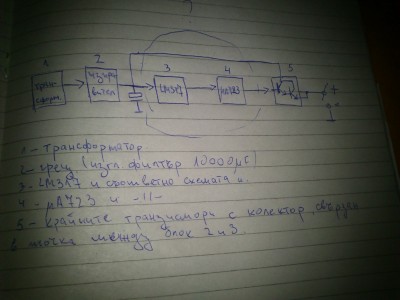 1 2 3 4 5
транс форм.
изпра вител
LM317
μA723
+
-
1 - трансформатор
2 - грец (изгл. филтър 10000μF)
3 - LM317 и съответно схемата ѝ.
4 - μA723 и -11-
5 - крайните транзистори с колектор, свързан
в точка между блок 2 и 3